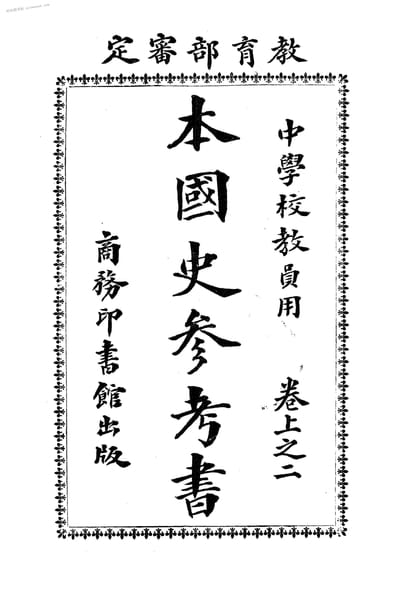 教育部審定
中學校教員用 卷上之二
本國史參考書
商務印書館出版